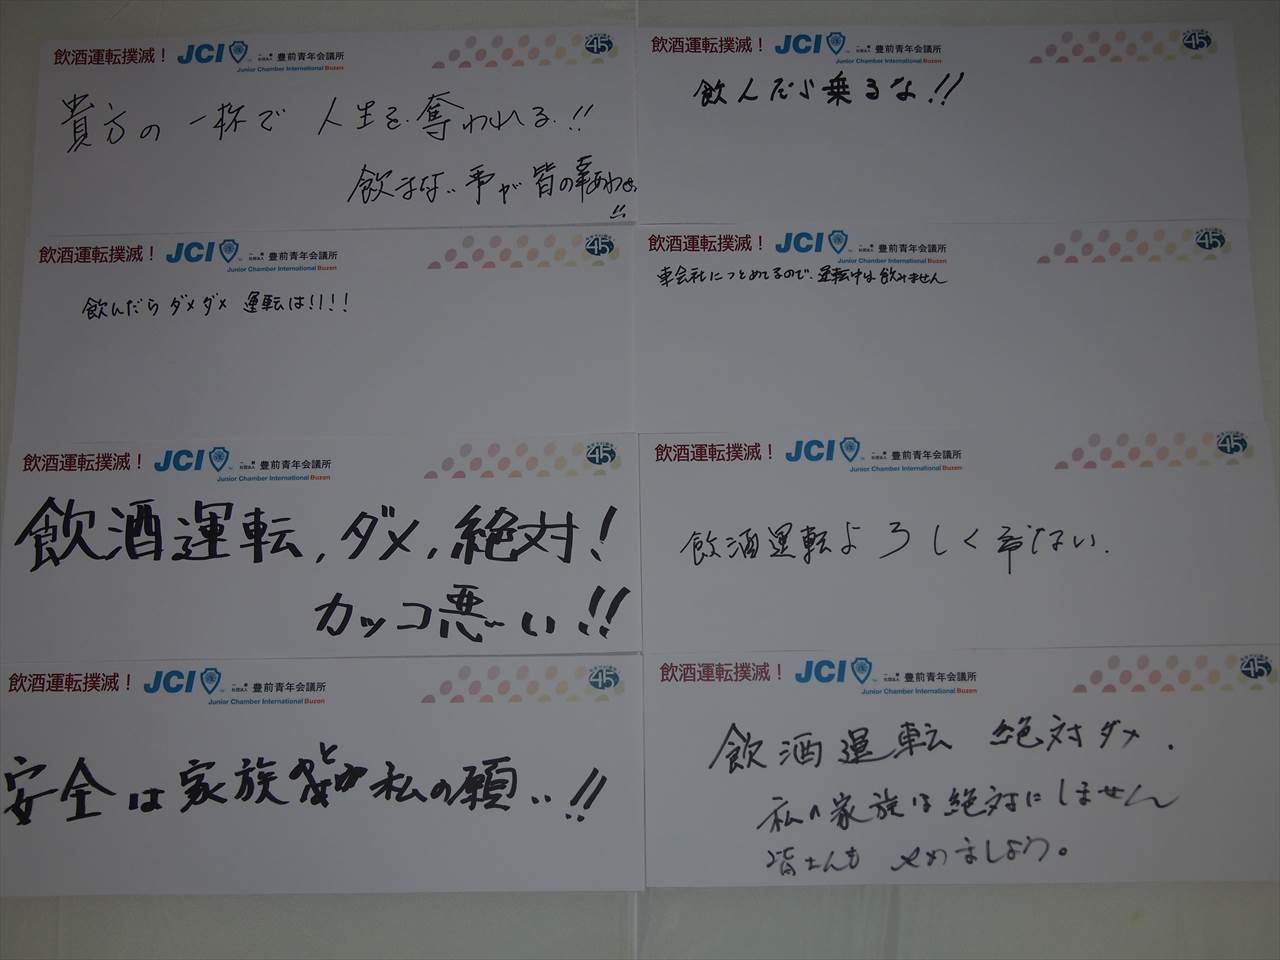 飲酒運転撲滅！ JCI 一般社団法人 豊前青年会議所
Junior Chamber International Buzen
45
貴方の 一杯で 人生を奪われる!!
飲まない事が皆の幸あわせ
!!
飲酒運転撲滅！ JCI 一般社団法人 豊前青年会議所
Junior Chamber International Buzen
45
飲んだら乗るな!!
飲酒運転撲滅！ JCI 一般社団法人 豊前青年会議所
Junior Chamber International Buzen
45
飲んだら ダメダメ 運転は!!!!
飲酒運転撲滅！ JCI 一般社団法人 豊前青年会議所
Junior Chamber International Buzen
45
車会社につとめてるので、運転中は飲みません
飲酒運転撲滅！ JCI 一般社団法人 豊前青年会議所
Junior Chamber International Buzen
45
飲酒運転,ダメ,絶対!
カッコ悪い!!
飲酒運転撲滅！ JCI 一般社団法人 豊前青年会議所
Junior Chamber International Buzen
45
飲酒運転よろしくない.
飲酒運転撲滅！ JCI 一般社団法人 豊前青年会議所
Junior Chamber International Buzen
45
安全は家族と私の願い!!
飲酒運転撲滅！ JCI 一般社団法人 豊前青年会議所
Junior Chamber International Buzen
45
飲酒運転 絶対ダメ.
私の家族は絶対にしません
皆さんも やめましょう。